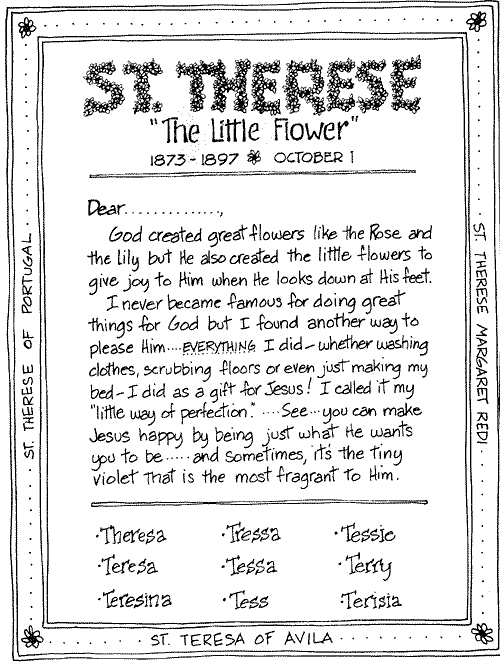 ST. THERESE
"The Little Flower"
1873-1897 OCTOBER 1
Dear..............,
God created great flowers like the Rose and
the Lily but He also created the little flowers to
give joy to Him when He looks down at His feet.
I never became famous for doing great
things for God but I found another way to
please Him....EVERYTHING I did-whether washing
clothes, scrubbing floors or even just making my
bed-I did as a gift for Jesus! I called it my
"little way of perfection." ....See...you can make
Jesus happy by being just what He wants
you to be.....and sometimes, it's the tiny
violet that is the most fragrant to Him.
·Theresa ·Tressa ·Tessie
·Teresa ·Tessa ·Terry
·Teresina ·Tess ·Terisia
ST. THERESE OF PORTUGAL
ST. THERESE MARGARET REDI
ST. TERESA OF AVILA